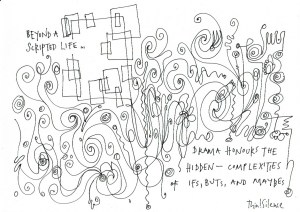 BEYOND A
SCRIPTED LIFE ..
DRAMA HONOURS THE
HIDDEN - COMPLEXITIES
OF IFS, BUTS, AND MAYBES